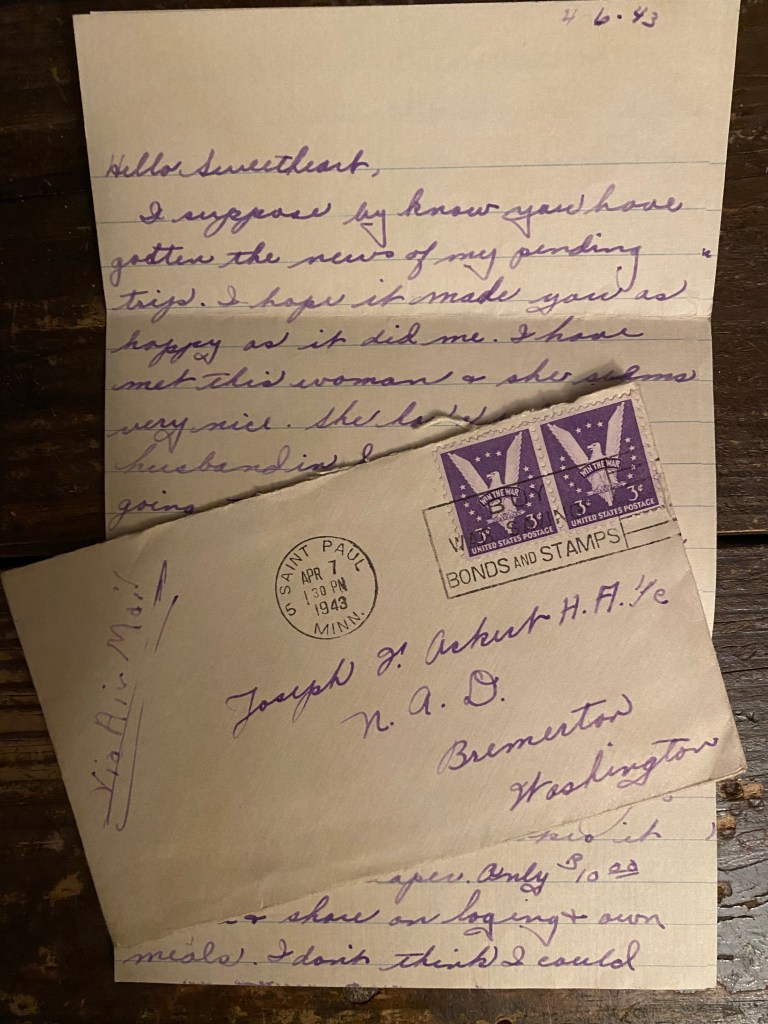 4 6 • 43
Hello Sweetheart,
I suppose by know you have
gotten the news of my pending
trip. I hope it made you as
happy as it did me. I have
met this woman & she seems
very nice. She
husband in
going
WIN THE WAR
3¢
UNITED STATES POSTAGE
WIN THE WAR
3¢ 3¢
UNITED STATES POSTAGE
BUY
BONDS AND STAMPS
SAINT PAUL
APR 7
1 30 PM
1943
MINN.
5
Via Air Mail
Joseph F. Ackert H.A. 1/c
N. A. D.
Bremerton
Washington
it
Only $10 00
& share on loging & own
meals. I don't think I could